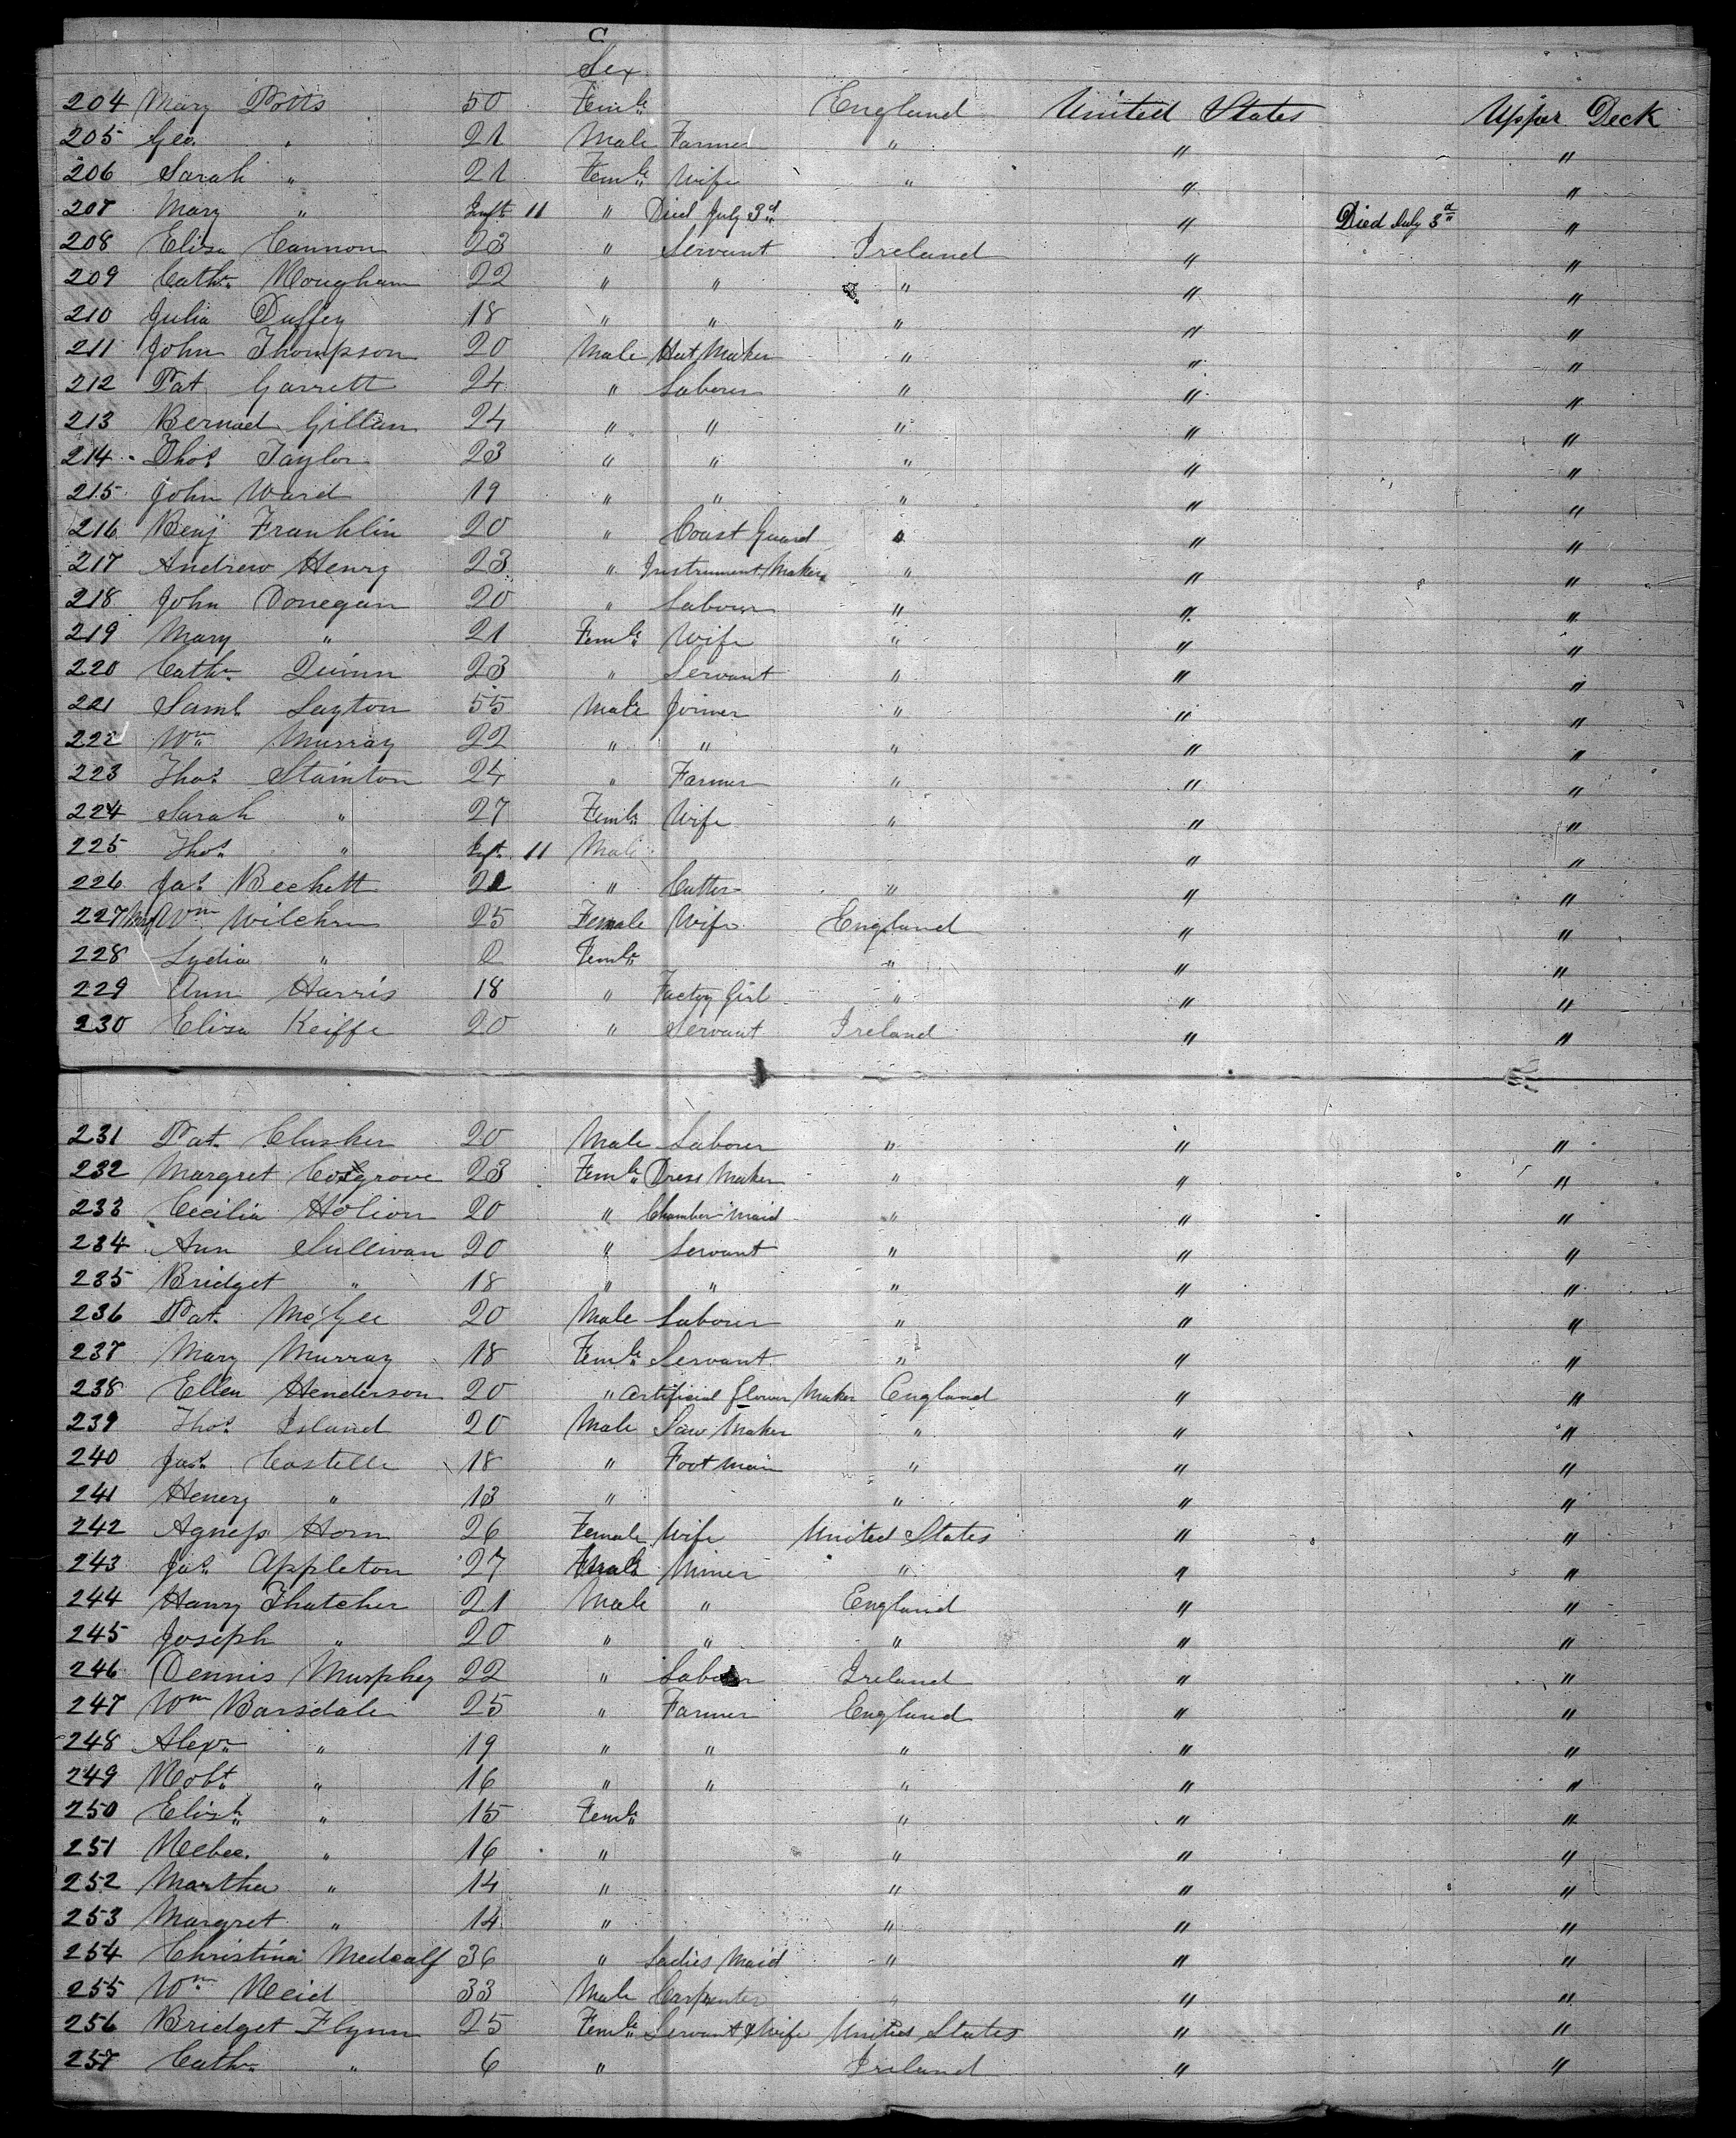 C
Sex
204 Mary Potts 50 Femle England United States Upper Deck
205 Geo. " 21 Male Farmer " " "
206 Sarah " 21 Femle Wife " " "
207 Mary " Inft 11 " Died July 3d " Died July 3d "
208 Eliza Cannon 23 " Servant Ireland " "
209 Cathn Rougham 22 " " " " "
210 Julia Duffey 18 " " " " "
211 John Thompson 20 Male Hat Maker " " "
212 Pat Garrett 24 " Laborer " " "
213 Bernad Gillan 24 " " " " "
214 Thos Taylor 23 " " " " "
215 John Ward 19 " " " " "
216 Benj Franklin 20 " Coast Guard " " "
217 Andrew Henry 23 " Instrument Maker " " "
218 John Donegan 20 " Laborer " " "
219 Mary " 21 Femle Wife " " "
220 Cathn Quinn 23 " Servant " " "
221 Saml Layton 55 Male Joiner " " "
222 Wm Murray 22 " " " " "
223 Thos Stainton 24 " Farmer " " "
224 Sarah " 27 Femle Wife " " "
225 Thos " Inft 11 Male " "
226 Jas Beckett 21 " Cutter " " "
227 Wm 25 Female Wife England " "
228 Lydia " Femle " " "
229 Ann Harris 18 " Factory Girl " " "
230 Eliza Keiffe 20 " Servant Ireland " "
231 Pat. Clusker 20 Male Laborer " " "
232 Margret Cosgrove 23 Femle Dress Maker " " "
233 Cecilia Holion 20 " Chamber Maid " " "
234 Ann Sullivan 20 " Servant " " "
235 Bridget " 18 " " " " "
236 Pat. McGee 20 Male Laborer " " "
237 Mary Murray 18 Femle Servant " " "
238 Ellen Henderson 20 " Artificial flower Maker England " "
239 Thos Island 20 Male Saw Maker " " "
240 Jas Castelle 18 " Foot man " " "
241 Henery " 13 " " " "
242 Agness Horn 26 Female Wife United States " "
243 Jas Appleton 27 Male Miner " " "
244 Harry Thatcher 21 Male " England " "
245 Joseph " 20 " " " " "
246 Dennis Murphey 22 " Laborer Ireland " "
247 Wm Barsdale 25 " Farmer England " "
248 Alexr " 19 " " " " "
249 Robt " 16 " " " " "
250 Elizh " 15 Femle " " "
251 Rebec. " 16 " " " "
252 Martha " 14 " " " "
253 Margret " 14 " " " "
254 Christina Medcalf 36 " Ladies Maid " " "
255 Wm Reid 33 Male Carpenter " " "
256 Bridget Flynn 25 Femle Servant & Wife United States " "
257 Cathn " 6 " Ireland " "